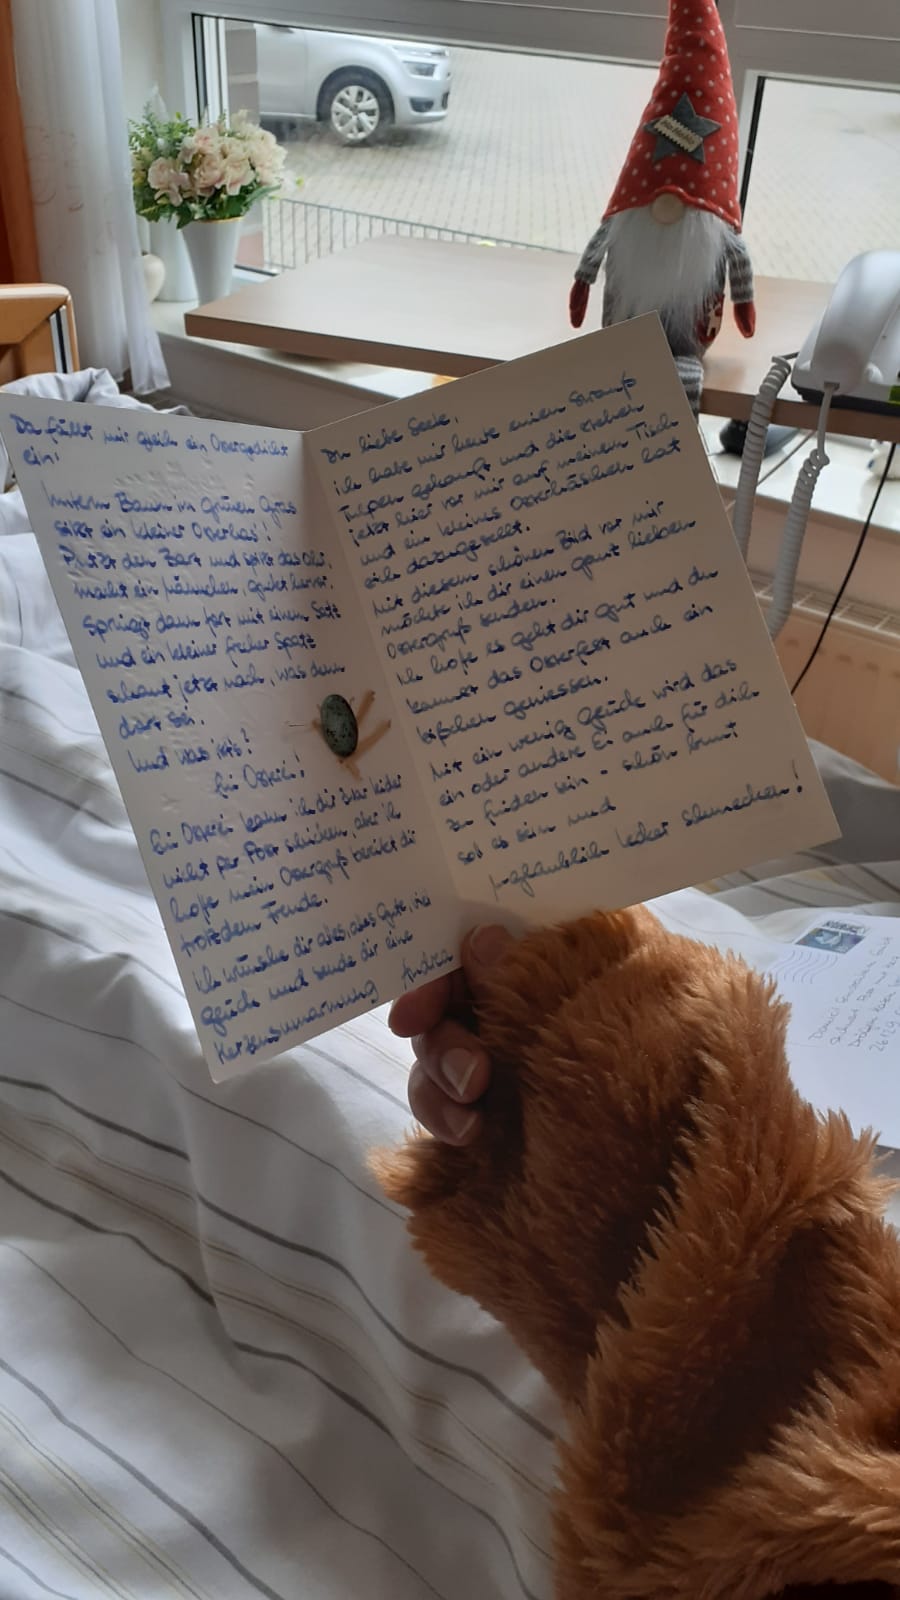 Da fällt mir gleich ein Ostergedicht
ein:
Unterm Baum im grünen Gras
sitzt ein kleiner Osterhas!
Putzt den Bart und spitzt das Ohr,
macht ein Männchen, guckt hervor.
Springt dann fort mit einem Satz
und ein kleiner frecher Spatz
schaut jetzt nach, was denn
dort sei.
Und was ist's?
Ein Osterei!
Ein Osterei kann ich dir zwar leider
nicht per Post schicken, aber ich
hoffe mein Ostergruß bereitet dir
trotzdem Freude.
Ich wünsche dir alles, alles Gute, viel
Glück und sende dir eine
Herzensumarmung Andrea
Du liebe Seele,
ich habe mir heute einen Strauß
Tulpen gekauft und die stehen
jetzt hier vor mir auf meinem Tisch
und ein kleines Osterhäschen hat
sich dazugesellt.
Mit diesem schönen Bild vor mir
möchte ich dir einen ganz lieben
Ostergruß senden.
Ich hoffe es geht dir gut und du
kannst das Osterfest auch ein
bißchen geniessen.
Mit ein wenig Glück wird das
ein oder andere Ei auch für dich
zu finden sein - schön bunt
soll es sein und
unglaublich lecker schmecken!
Daniel